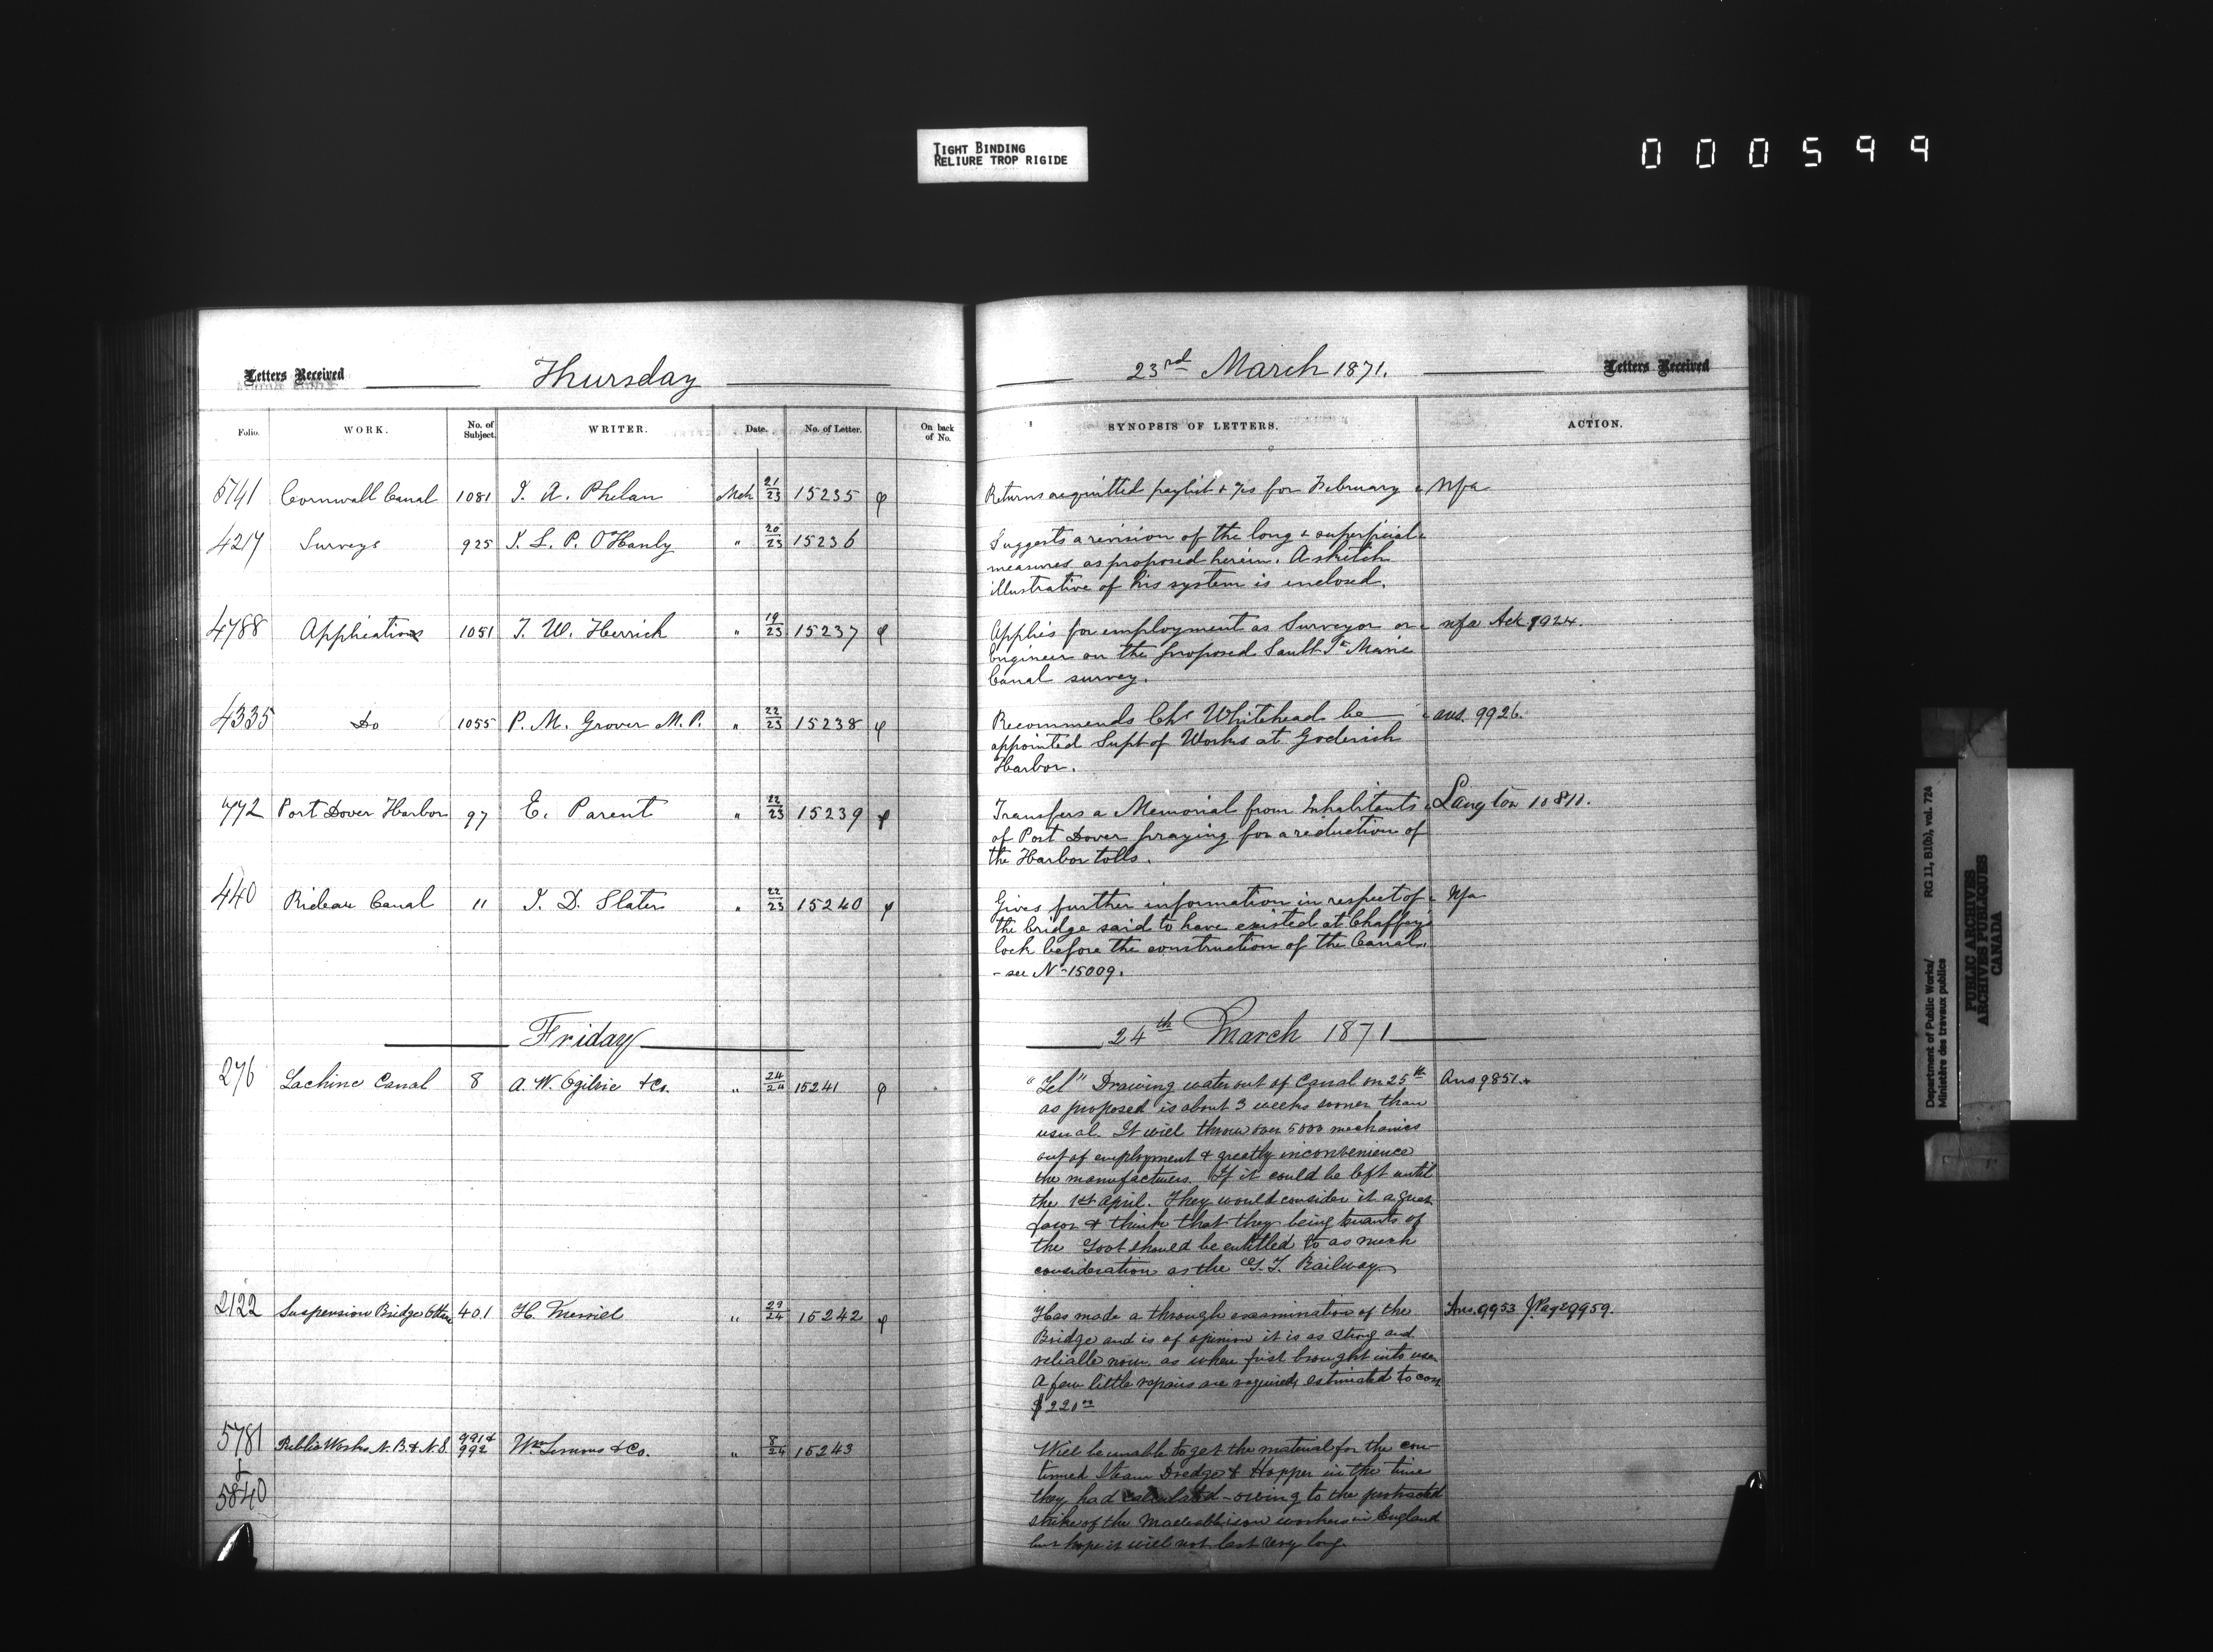 TIGHT BINDING
RELIURE TROP RIGIDE
000599
Letters Received Thursday 23rd March 1871. Letters Received
Folio. WORK. No. of Subject. WRITER. Date. No. of Letter. On back of No. SYNOPSIS OF LETTERS. ACTION.
5741 Cornwall Canal 1081 J. A. Phelan Mch 21/23 15235 Returns acquitted paylist & /cs for February Nfa
4217 Surveys 925 J. L. P. O'Hanly " 20/23 15236 Suggests a revision of the long & superficial
measures as proposed herein. A sketch
illustrative of his system is enclosed.
4788 Applications 1051 J. W. Herrick " 19/23 15237 Applies for employment as Surveyor or nfa Ack 9924.
Engineer on the proposed Sault Ste Marie
Canal survey.
4335 Do 1055 P. M. Grover M.P. " 22/23 15238 Recommends Chs Whitehead be ans. 9926.
appointed Supt of Works at Goderich
Harbor.
772 Port Dover Harbor 97 E. Parent " 22/23 15239 Transfers a Memorial from Inhabitants Langton 10811.
of Port Dover praying for a reduction of
the Harbor tolls.
440 Rideau Canal 11 J. D. Slater " 22/23 15240 Gives further information in respect of Nfa
the bridge said to have existed at Chaffey's
lock before the construction of the Canal.
- see No 15009.
Friday 24th March 1871
276 Lachine Canal 8 A. W. Ogilvie & Co. " 24/24 15241 "Tel" Drawing water out of Canal on 25th Ans 9851.
as proposed is about 3 weeks sooner than
usual. It will throw over 5000 mechanics
out of employment & greatly inconvenience
the manufacturers. If it could be left until
the 1st April. They would consider it a great
favor & think that they being tenants of
the Govt should be entitled to as much
consideration as the G. T. Railway
2122 Suspension Bridge Ottawa 401 H. Merrill " 23/24 15242 Has made a through examination of the Ans. 9953 Page 9959.
Bridge and is of opinion it is as strong and
reliable now, as when first brought into use
A few little repairs are required, estimated to cost
$220
5781 & 5840 Public Works N.B. & N.S. 991 & 992 Wm Simons & Co. " 8/24 15243 Will be unable to get the material for the con-
tinued Steam Dredge & Hopper in the time
they had calculated - owing to the protracted
strike of the Malleable iron workers in England
but hope it will not last very long.
Department of Public Works/ RG 11, B1(b), vol. 724
Ministère des travaux publics
PUBLIC ARCHIVES
ARCHIVES PUBLIQUES
CANADA